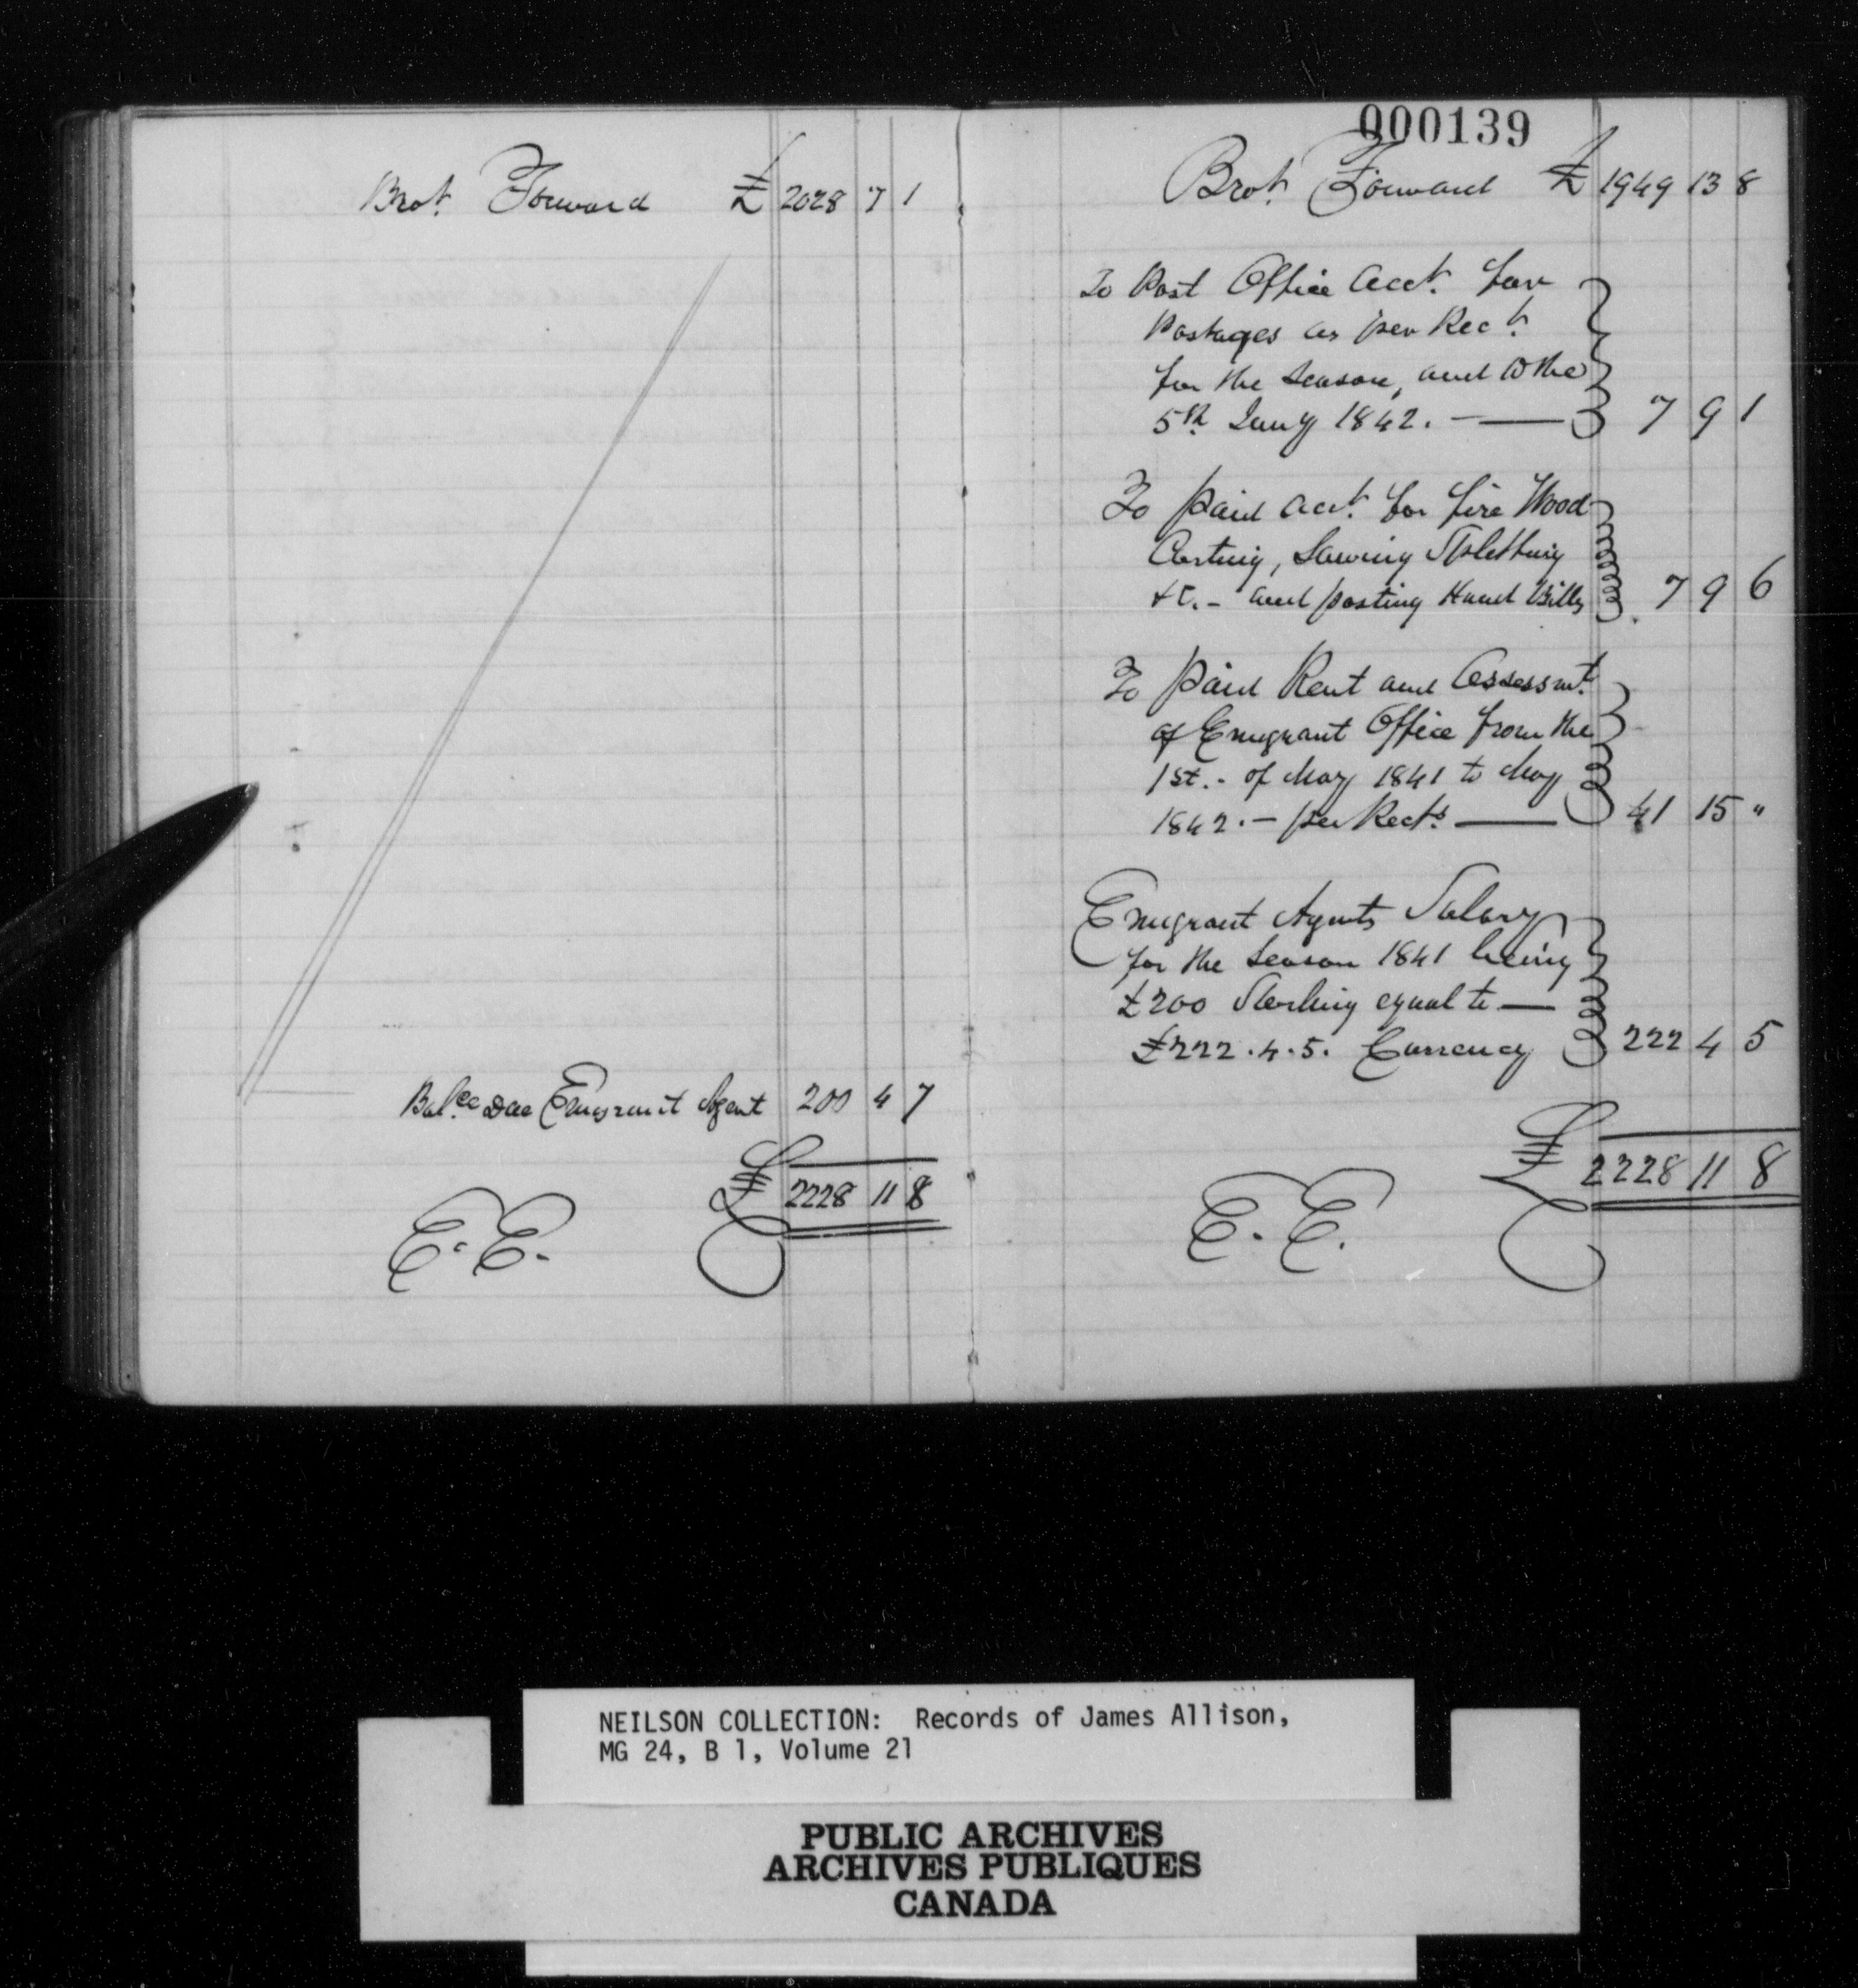 Brot. Forward £ 2028 7 1
Balce Due Emigrant Agent 200 4 7
£ 2228 11 8
E. E.
000139
Brot. Forward £ 1949 13 8
To Post Office Acct. for
Postages as per Rect.
for the Season, and to the
5th Jany 1842. — 7 9 1
To paid acct. for fire Wood
Carting, Sawing Spletting
&c. - and posting Hand Bills 7 9 6
To paid Rent and Assessmt.
of Emigrant Office from the
1st. - of May 1841 to May
1842. - per Rects. — 41 15 "
Emigrant Agents Salary
for the Season 1841 being
£200 Sterling equal to —
£222.4.5. Currency 222 4 5
£ 2228 11 8
E. E.
NEILSON COLLECTION: Records of James Allison,
MG 24, B 1, Volume 21
PUBLIC ARCHIVES
ARCHIVES PUBLIQUES
CANADA